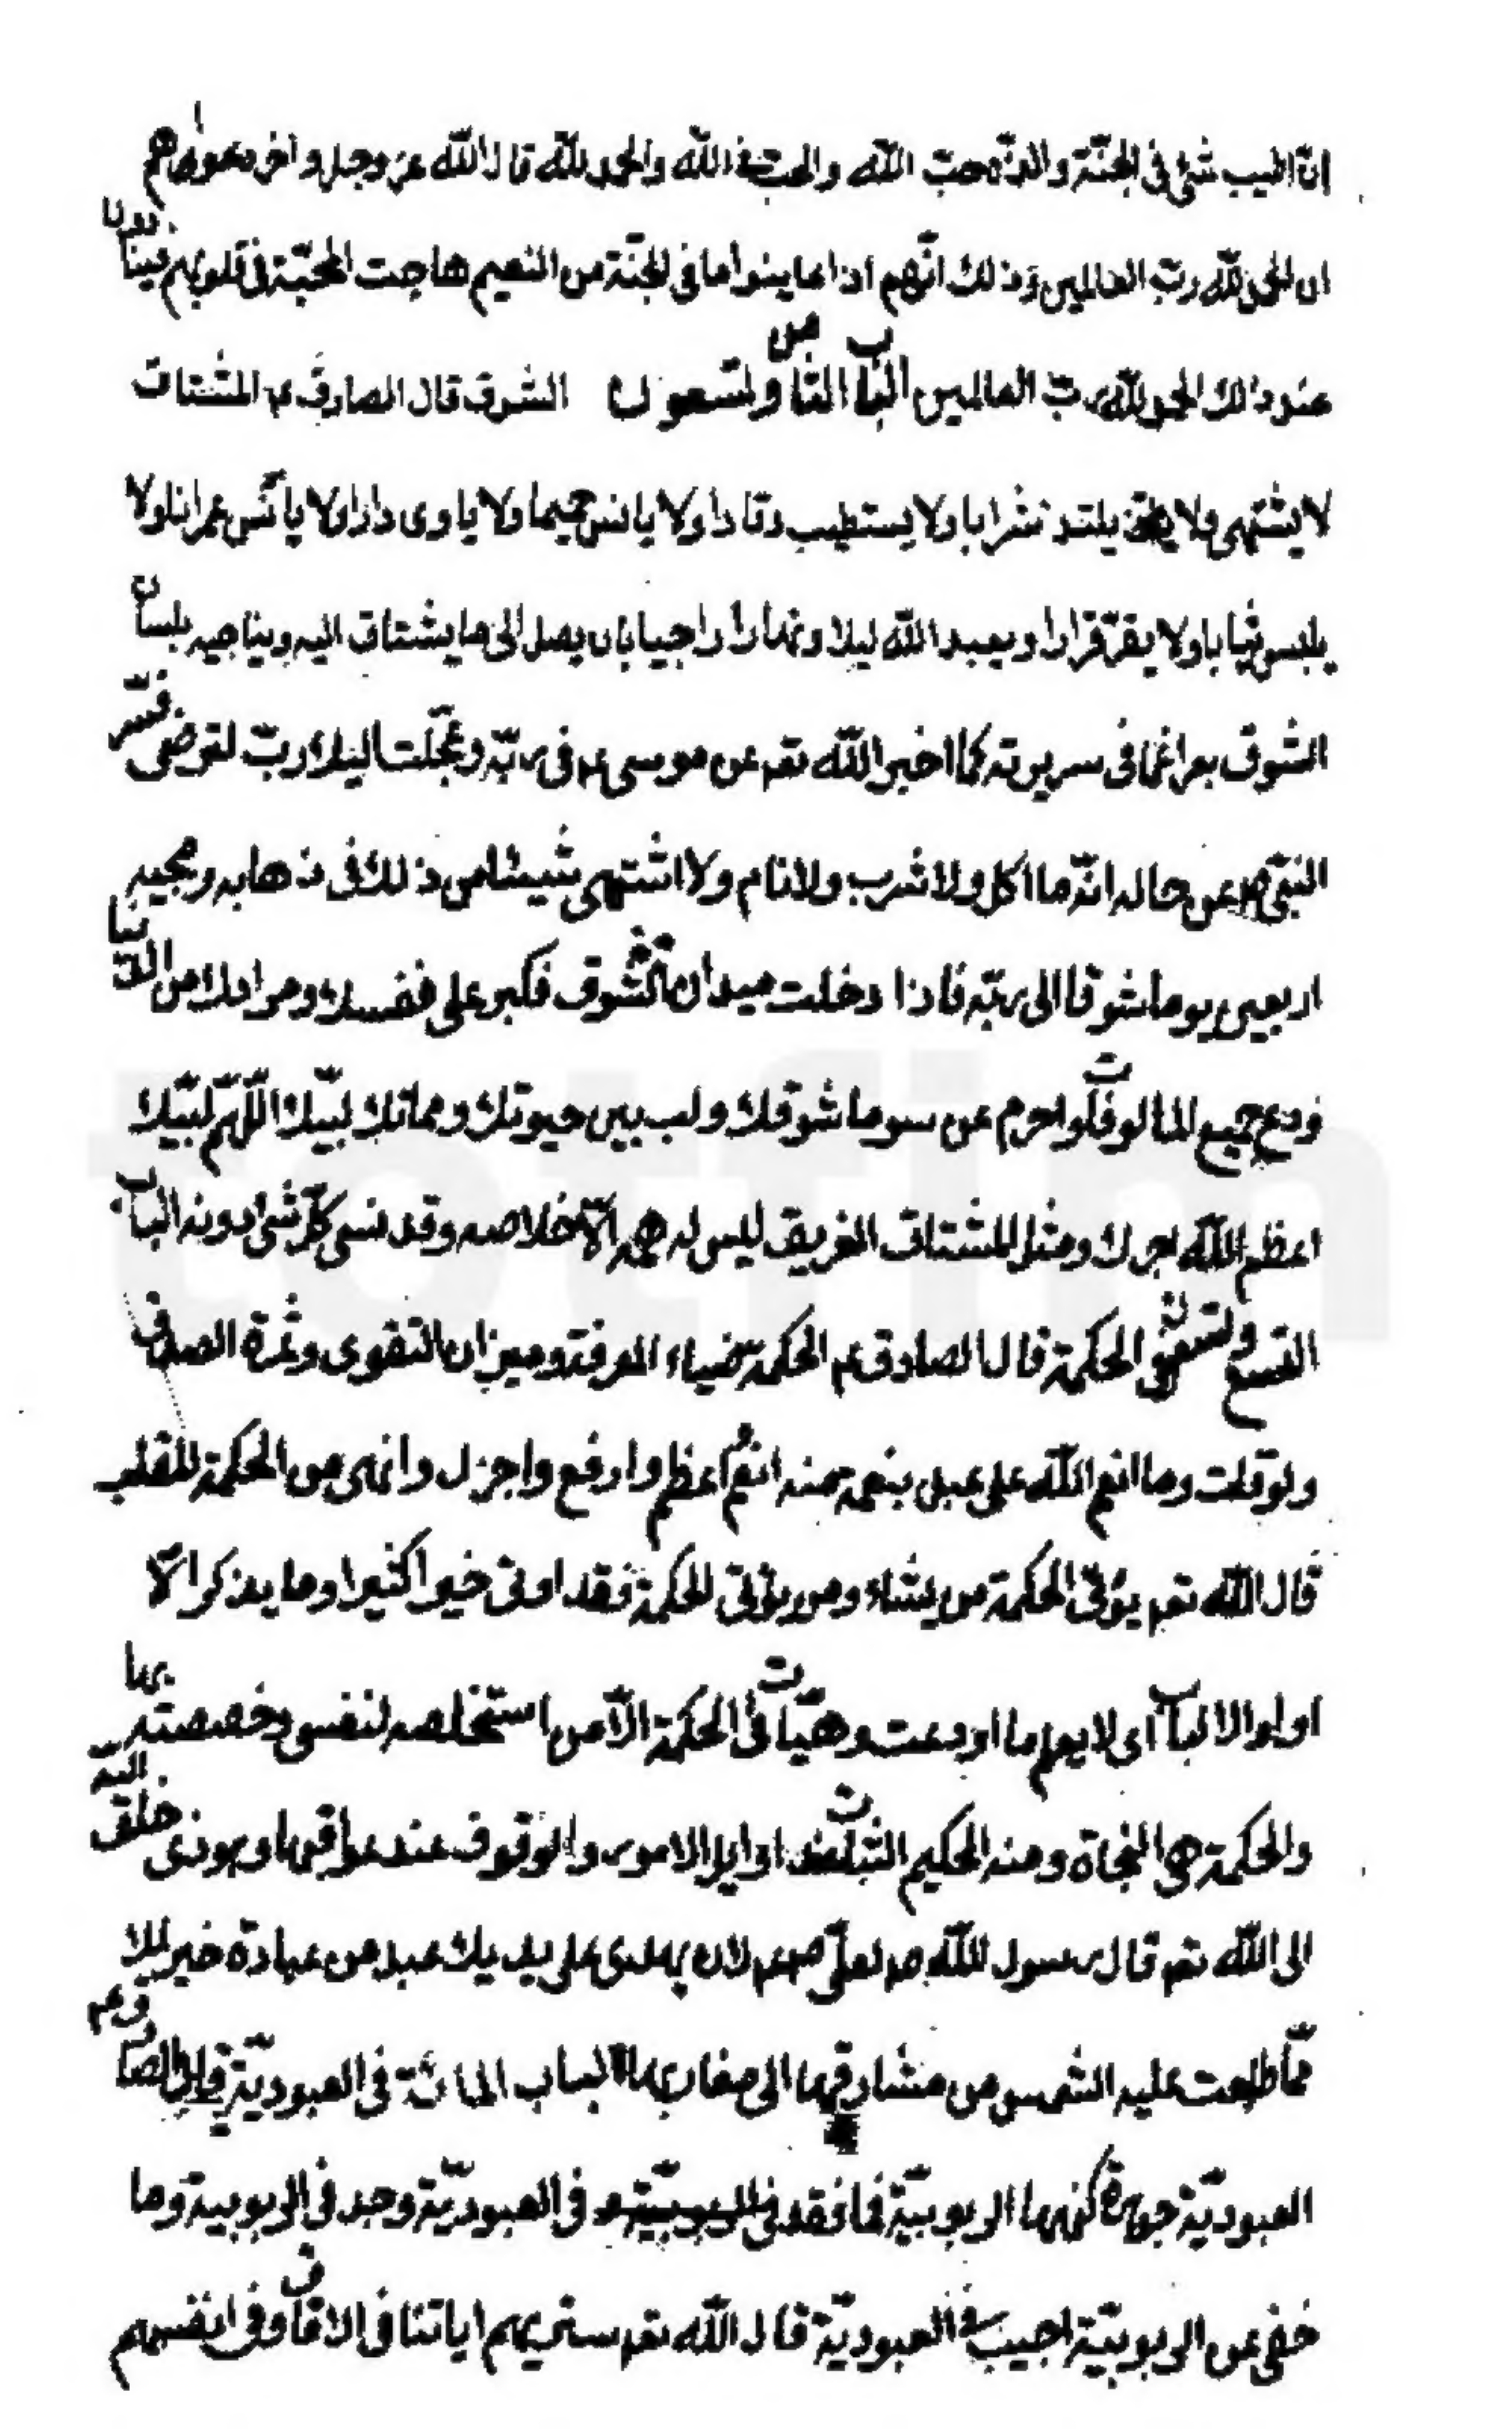 انّ اطيب شئ فى الجنّة والذّه حبّ اللّه والحبّ فى اللّه والحمد للّه قال اللّه عز وجل واخر دعواهم
ان الحمد للّه ربّ العالمين وذلك انّهم اذا عاينوا ما فى الجنّة من النعيم هاجت المحبّة فى قلوبهم فينادون
عند ذلك الحمد للّه ربّ العالمين الباب الثامن والتسعون الشوق قال الصادق ع المشتاق
لا يشتهى ولا يلتذ شرابا ولا يستطيب رقادا ولا يانس حميما ولا ياوى دارا ولا يانس عمرانا ولا
يلبس ثيابا ولا يقرّ قرارا ويعبد اللّه ليلا ونهارا راجيا بان يصل الى ما يشتاق اليه ويناجيه بلسان
الشوق بعرا عما فى سريرته كما اخبر اللّه تعه عن موسى ع فى ربّه وعجّلت اليك ربّ لترضى فسّر
النبّى ص عن حاله انّه ما اكل ولا شرب ولا نام ولا اشتهى شيئا من ذلك فى ذهابه ومجيه
اربعين يوما شوقا الى ربّه فاذا دخلت ميدان الشوق فكبر على نفسك ومرادك من الدّنيا
ودع جميع المالوفات واحرم عن سوى ما شوقك ولب بين حيوتك ومماتك لبّيك اللّهمّ لبّيك
اعظم اللّه اجرك ومثل المشتاق الغريق ليس له همه الّا خلاصه وقد نسى كلّ شئ دونه الباب
التسع والتسعون الحكمة قال الصادق ع الحكمة ضياء المعرفة وميزان التقوى وثمرة الصدق
ولو قلت وما انعم اللّه على عبد بنعمة منه انعم اعظم وارفع واجزل وابهى من الحكمة للقلب
قال اللّه تعه يؤتى الحكمة من يشاء ومن يؤتى الحكمة فقد اوتى خيرا كثيرا وما يذكر الّا
اولوا الالباب اى لا يعلم ما اودعت وهيّات فى الحكمة الّا من استخلصه لنفسى وخصصته بها
والحكمة هى النجاة ومنه الحكيم الثبات عند اوايل الامور والوقوف عند عواقبها وهو هادى خلق اللّه
الى اللّه تعه قال رسول اللّه ص لعلّى ع لان يهدى على يديك عبد من عباده خير لك
ممّا طلعت عليه الشمس من مشارقها الى مغاربها الباب المائة فى العبوديّة قال الصادق ع
العبوديّة جوهرة كنهها الربوبيّة فما فقد فى العبوديّة وجد فى الربوبية وما
خفى عن الربوبيّة اصيب فى العبوديّة قال اللّه تعه سنريهم اياتنا فى الافاق وفى انفسهم